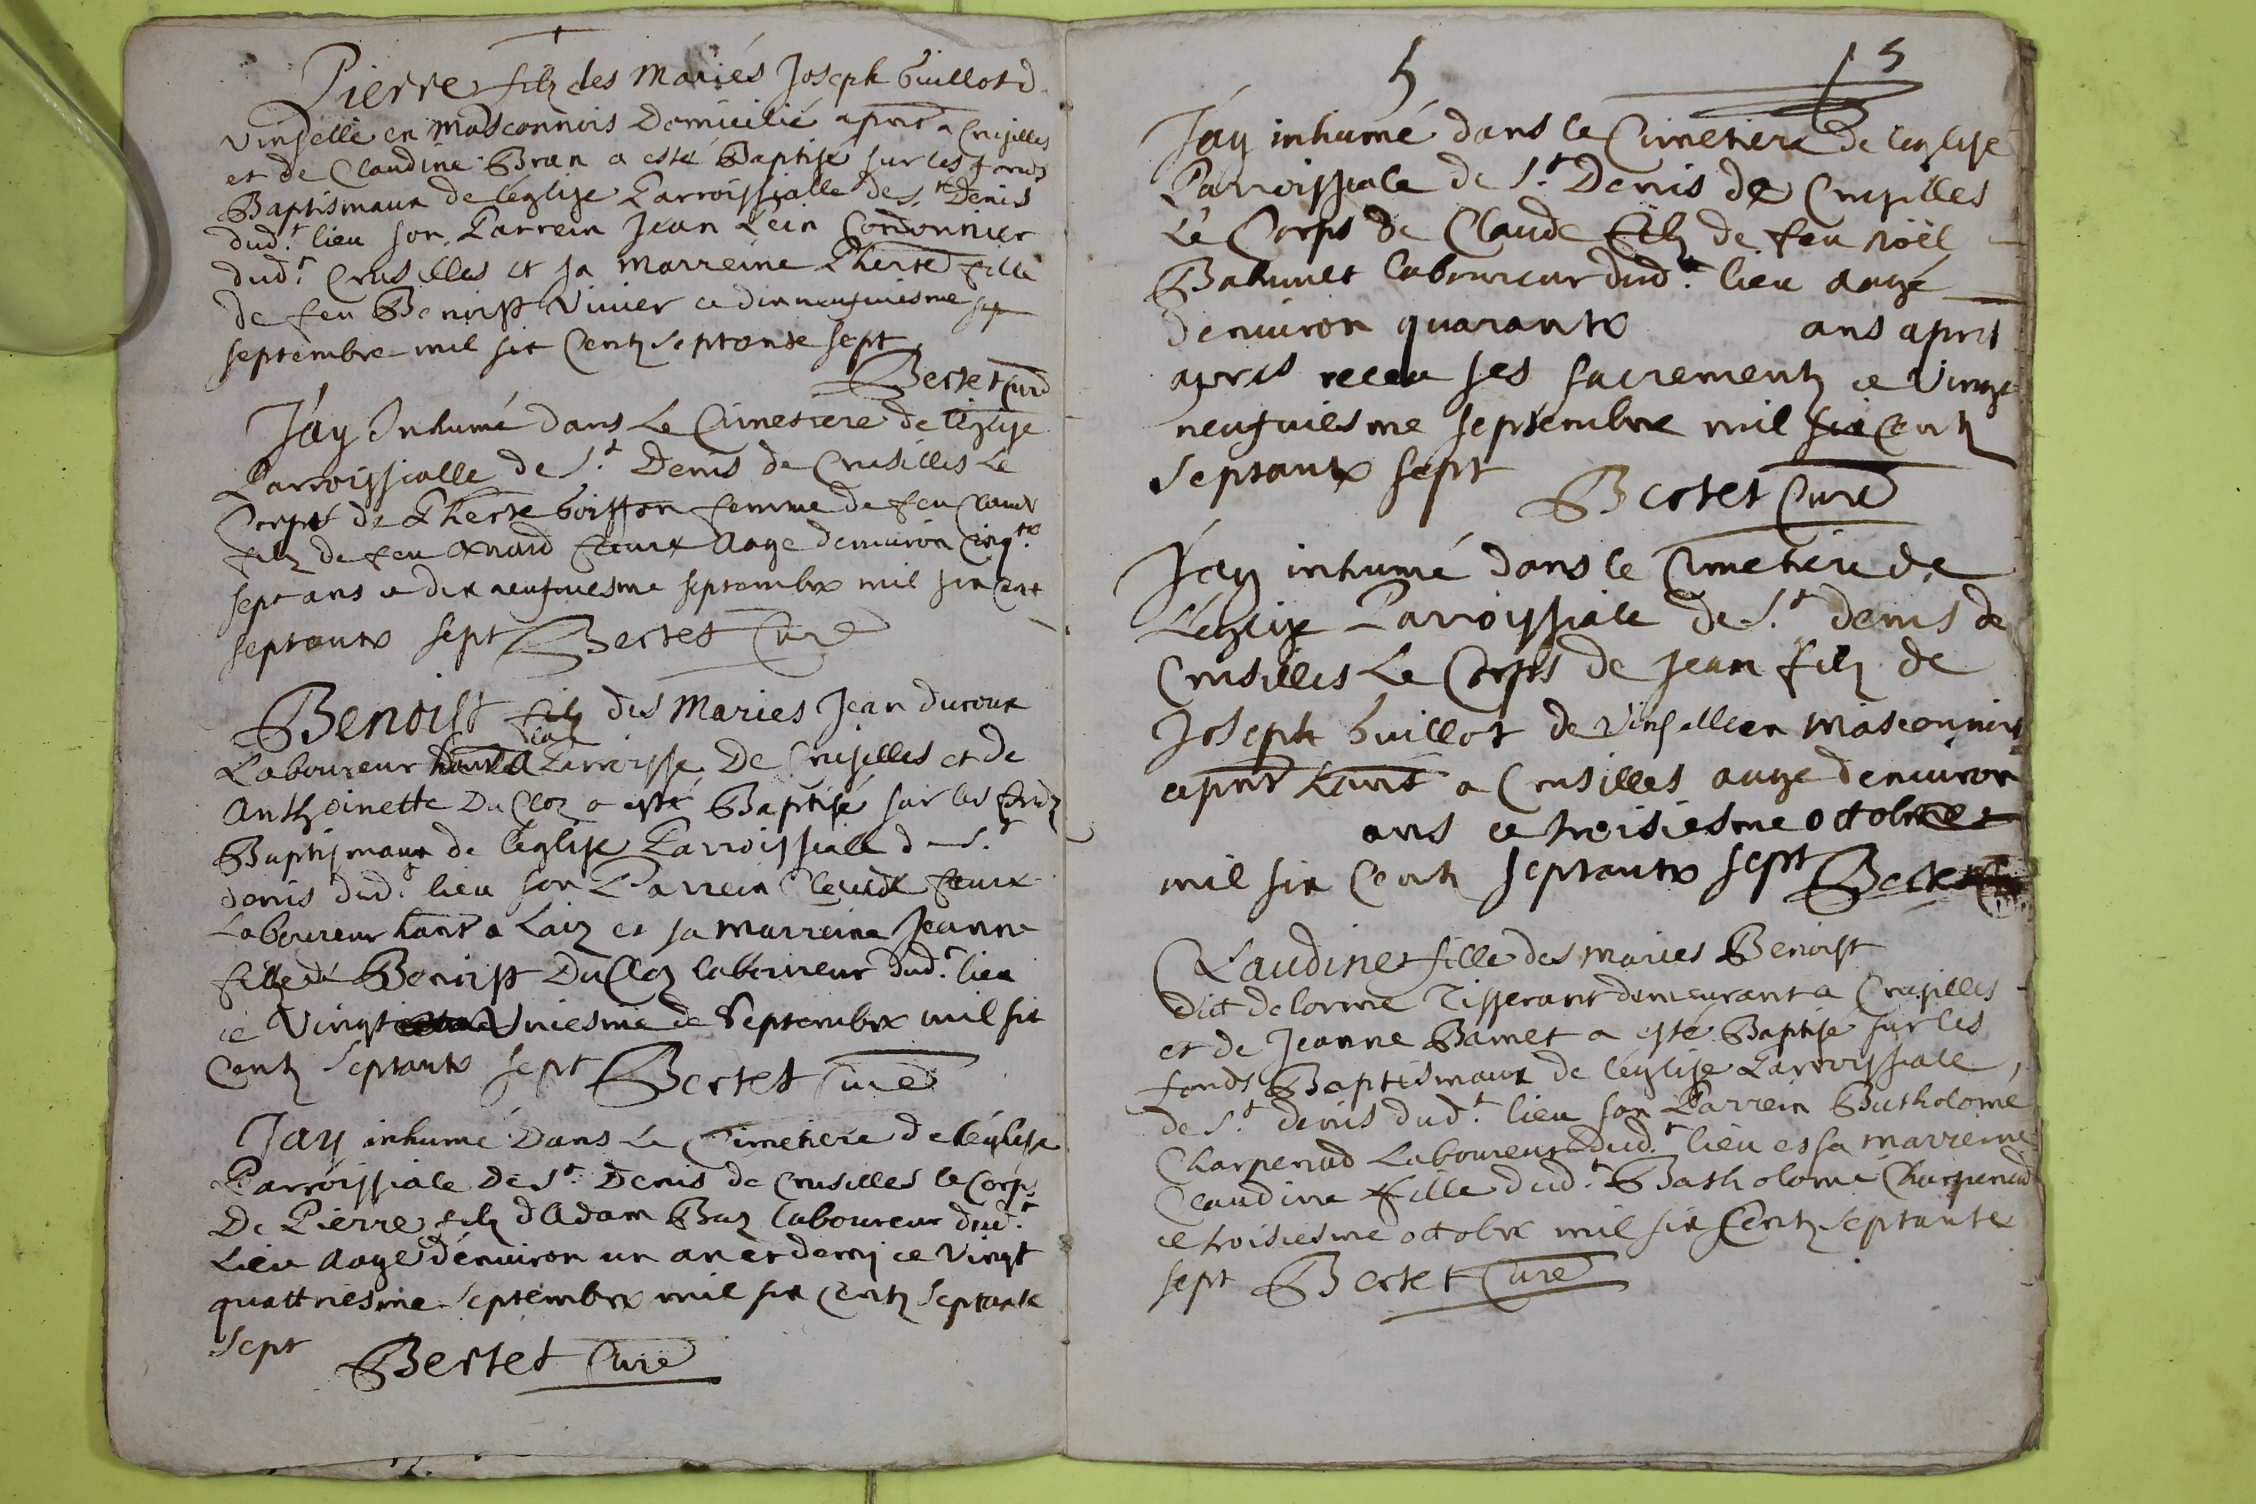 Pierre filz des Mariés Joseph Guillot d
Vinselle en Masconnois Domicilié a pnt a Crusilles
et de Claudine Bran a esté Baptisé sur les fonds
Baptismaux de leglise Parroissialle de St Denis
dudt lieu son Parrein Jean Lein Cordonnier
dudt Crusilles et sa Marreine Pierte fille
de feu Benoist Vivier ce dixneufviesme
septembre mil six Centz septante sept
Bertet Curé
Jay Inhumé dans Le Cimetiere de leglise
Parroissialle de St Denis de Crusilles Le
Corps de Pierte boisson femme de feu Claude
filz de feu Faure Aage denviron Cinqte
sept ans ce dix neufviesme septembre mil six Cent
septante sept Bertet Curé
Benoist filz des Maries Jean duroux
Laboureur en la Parroisse De Crusilles et de
Anthoinette Du Cloz a esté Baptisé sur les fondz
Baptismaux de leglise Parroissialle de St
denis dudt lieu son Parrein Claude Faure
Laboureur hant a Laiz et sa Marreine Jeanne
fille de Benoist Du Cloz laboureur dudt lieu
ce Vingt Vniesme de Septembre mil six
Centz Septante sept Bertet Curé
Jay inhumé Dans Le Cimetiere de leglise
Parroissiale De St Denis de Crusilles le Corps
De Pierre filz dAdam Buz laboureur dudt
Lieu Aagé denviron un an et demy ce Vingt
quattriesme Septembre mil six Centz Septante
Sept Bertet Curé
5
Jay inhumé dans le Cimetiere de leglise
Parroissiale de St Denis de Crusilles
Le Corps de Claude filz de feu Noël
Bahuuet laboureur dudt lieu Aagé
denviron quarante ans apres
apres receu ses sacrementz ce Vingt
neufviesme septembre mil six Centz
Septante sept
Bertet Curé
Jay inhumé dans le Cimetiere de
Leglise Parroissiale de St denis de
Crusilles Le Corps de Jean filz de
Joseph Guillot de Vinselle en Masconnois
a pnt hant a Crusilles aagé denviron
ans ce troisiesme octobre
mil six Centz septante sept Bertet
Claudine fille des Maries Benoist
dict delorme Tisserant demeurant a Crusilles
et de Jeanne Bamet a esté Baptisé sur les
fonds Baptismaux de leglise Parroissiale
de St denis dudt lieu son Parrein Batholomé
Charpenad Laboureur dudt lieu et sa marreine
Claudine fille dudt Batholomé Charpenad
ce troisiesme octobre mil six Centz septante
sept Bertet Curé